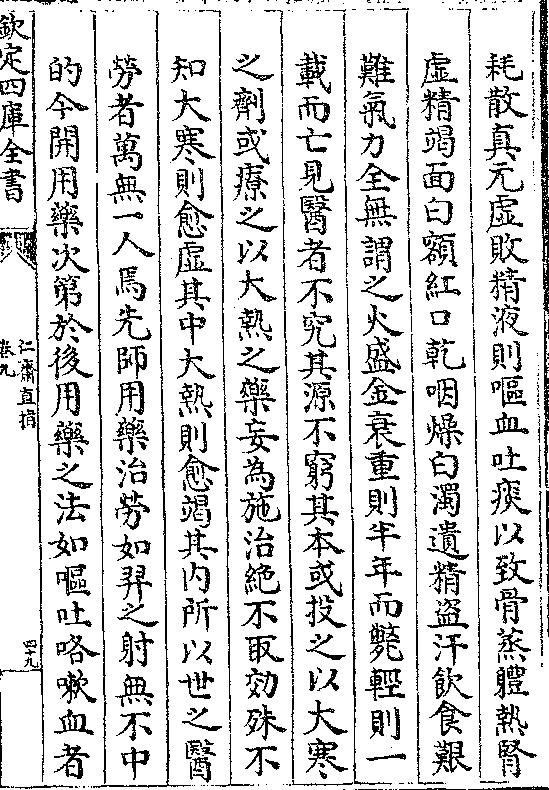 耗散真元虛敗精液則嘔血吐痰以致骨蒸軆熱腎
虛精竭面白額紅口乾咽燥白濁遺精盜汗飲食艱
難氣力全無謂之火盛金衰重則半年而斃輕則一
載而亡見醫者不究其源不窮其本或投之以大寒
之劑或療之以大熱之藥妄為施治絶不取効殊不
知大寒則愈虛其中大熱則愈竭其内所以世之醫
勞者萬無一人焉先師用藥治勞如羿之射無不中
的今開用藥次第於後用藥之法如嘔吐咯嗽血者
欽定四庫全書
仁齋直指
卷九
四十九